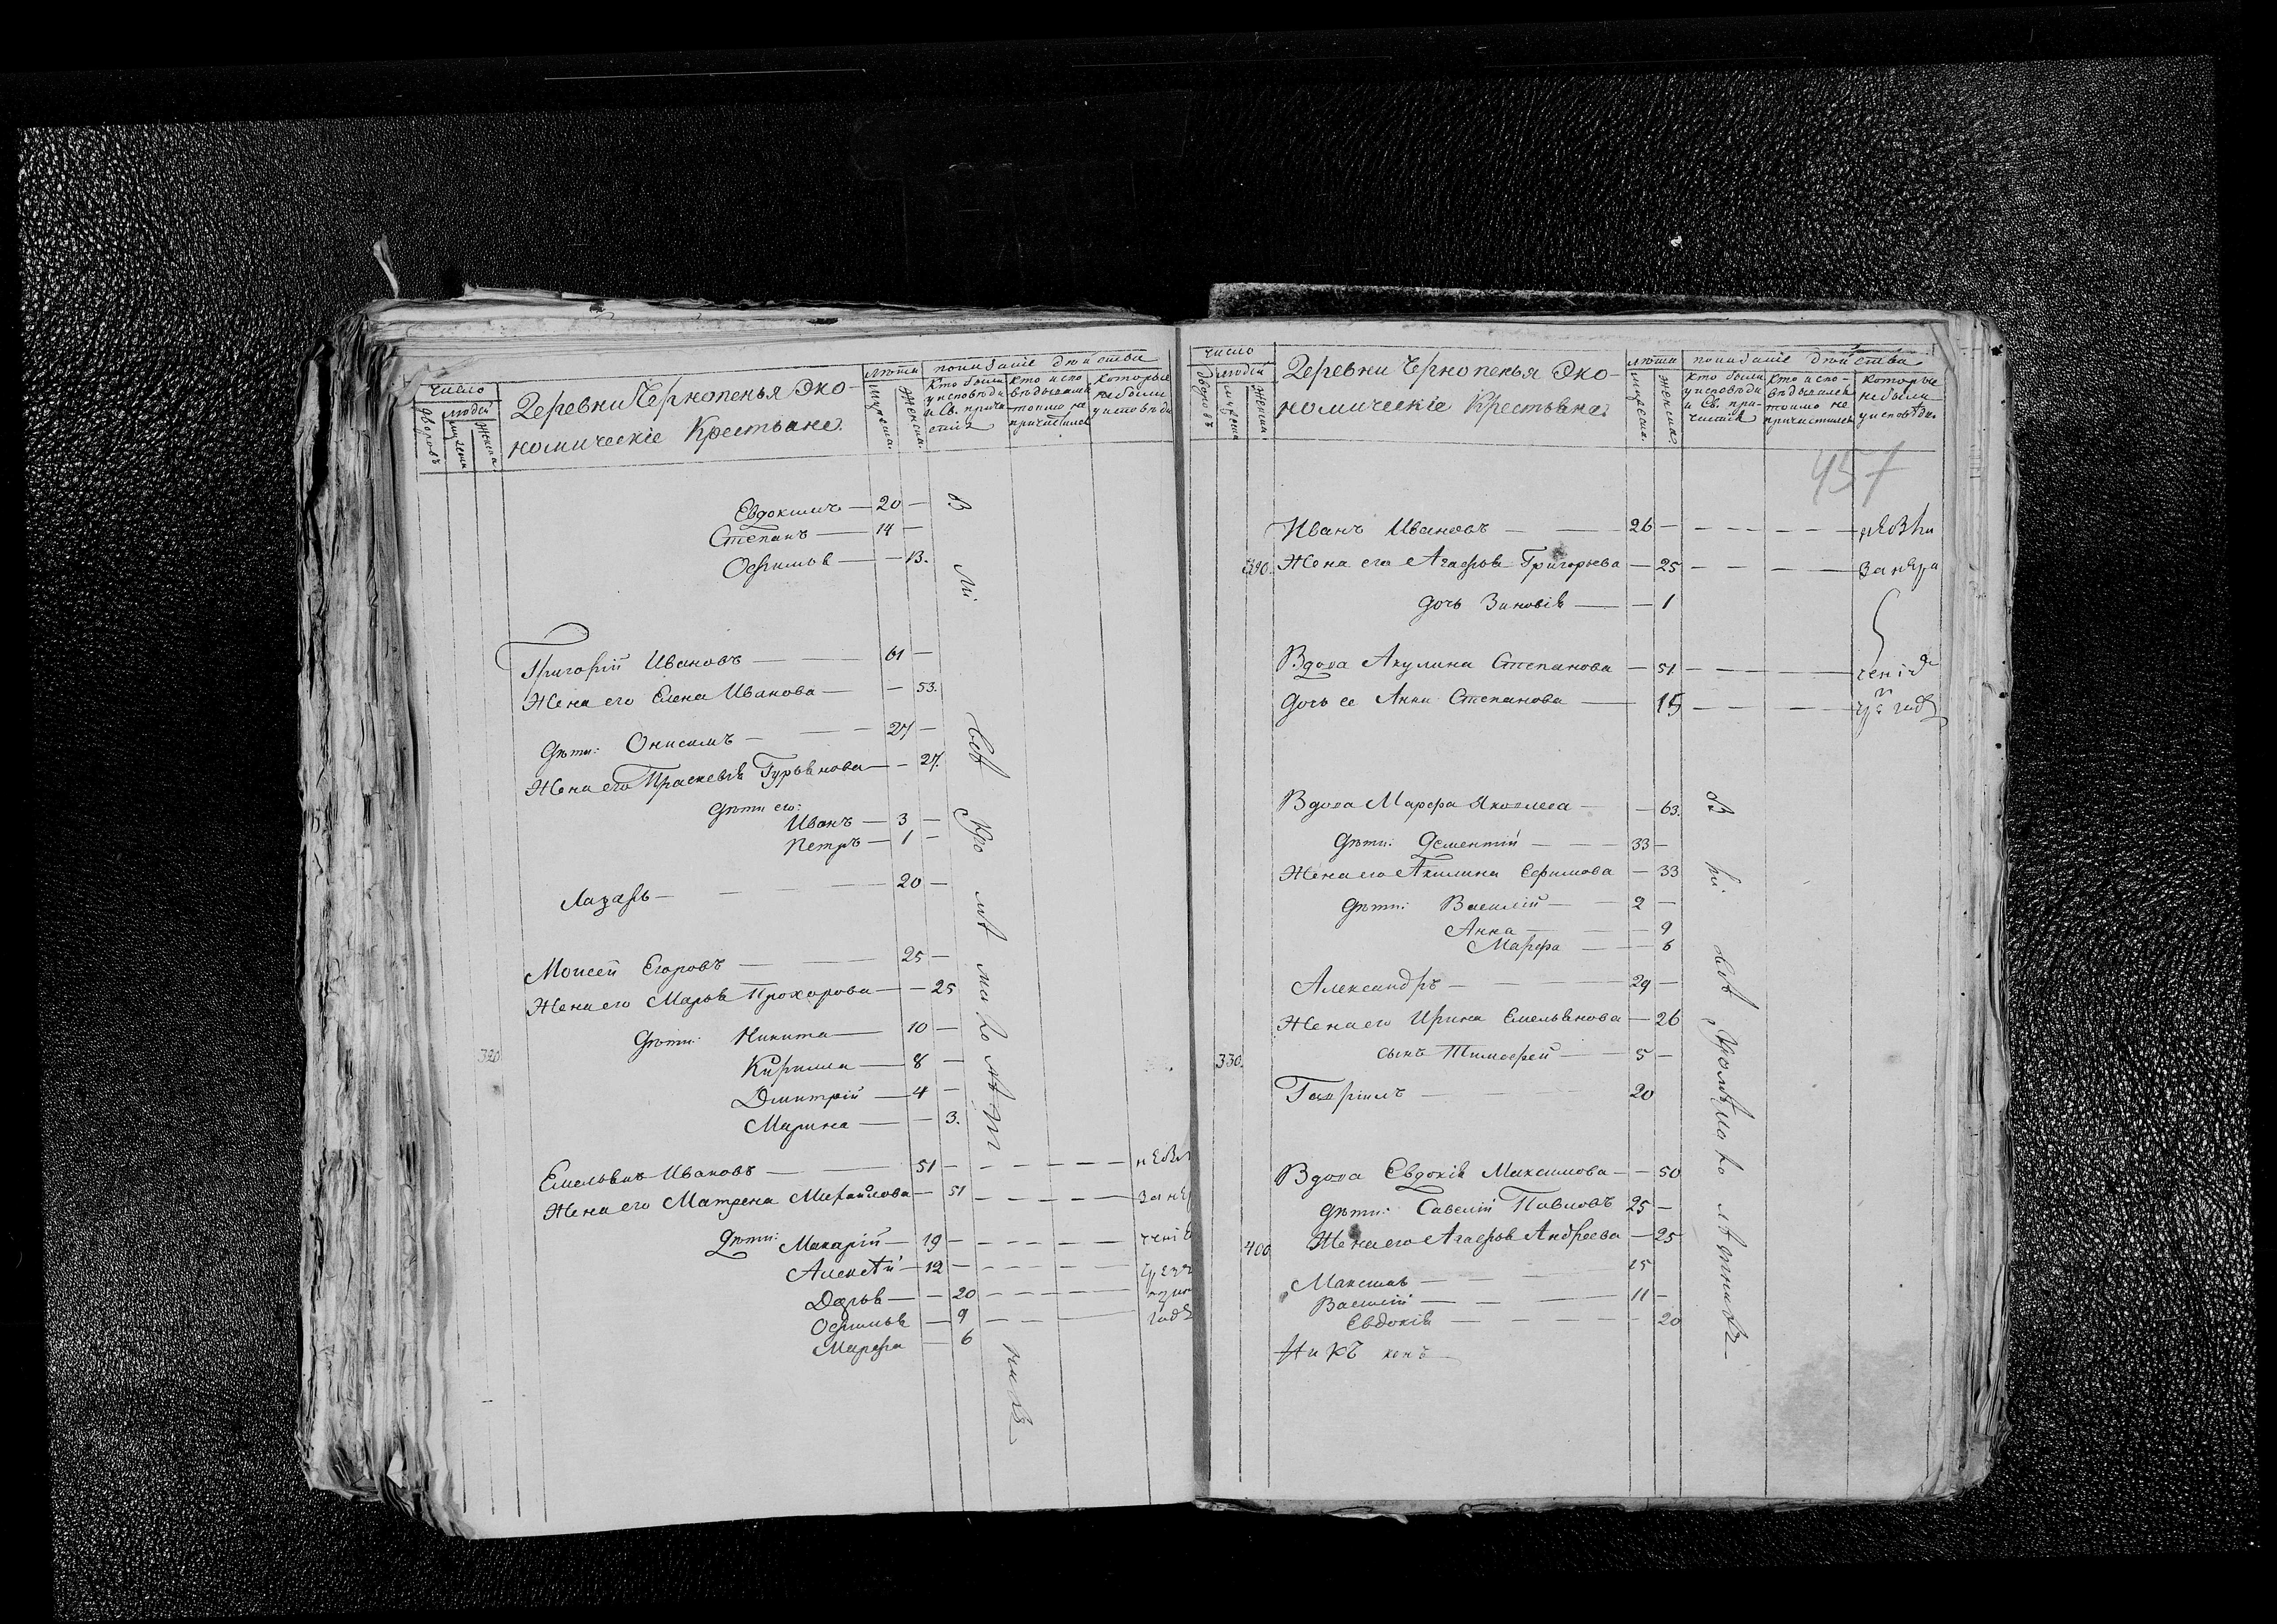 число
людей
дворовъ
мужеска
женска
Деревни Чернопенья Эко-
номическiе Крестьяне.
лѣта
мужеска.
женска.
показанiе дѣйства
кто были у исповѣди и Св. прича- стiя
кто испо- вѣдывались токмо не причастились
которые не были у исповѣди
Евдокимъ — 20 —
Степанъ — 14 —
Офимья — 13.
Григорiй Ивановъ — 61 —
Жена его Елена Иванова — — 53.
дѣти: Онисимъ — 27 —
Жена его Прасковья Гурьянова — — 27.
дѣти его:
Иванъ — 3 —
Петръ — 1 —
Лазарь — 20 —
Моисей Егоровъ — 25 —
Жена его Марья Прохорова — — 25
320
дѣти: Никита — 10 —
Кирилла — 8 —
Дмитрiй — 4 —
Марина — — 3.
Емельянъ Ивановъ — 51 —
Жена его Матрена Михайлова — 51
дѣти: Макарiй — 19 —
Алексѣй — 12 —
Дарья — — 20
Офимья — 9
Марфа — 6
Вси всѣ кромѣ малолѣтнихъ
число
людей
дворовъ
мужеска
женска
Деревни Чернопенья Эко-
номическiе Крестьяне.
лѣта
мужеска.
женска.
показанiе дѣйства
кто были у исповѣди и Св. при- частiя
кто испо- вѣдывались токмо не причастились
которые не были у исповѣди.
457
Иванъ Ивановъ — 26 —
390. Жена его Агафья Григорьева — 25
дочь Зиновiя — — 1
Вдова Акулина Степанова — 51
дочь ее Анна Степанова — 15
Вдова Марфа Яковлева — — 63.
дѣти: Дементiй — 33 —
Жена его Акилина Ефимова — 33
дѣти: Василiй — 2 —
Анна — 9
Марфа — 6
Александръ — 29 —
Жена его Ирина Емельянова — 26
330. сынъ Тимофей — 5 —
Гаврiилъ — 20
Вдова Евдокiя Максимова — — 50
дѣти: Савелiй Павловъ 25 —
400 Жена его Агафья Андреева — 25
Максимъ — 15
Василiй — 11 —
Евдокiя — 20
всѣ кромѣ малолѣтнихъ